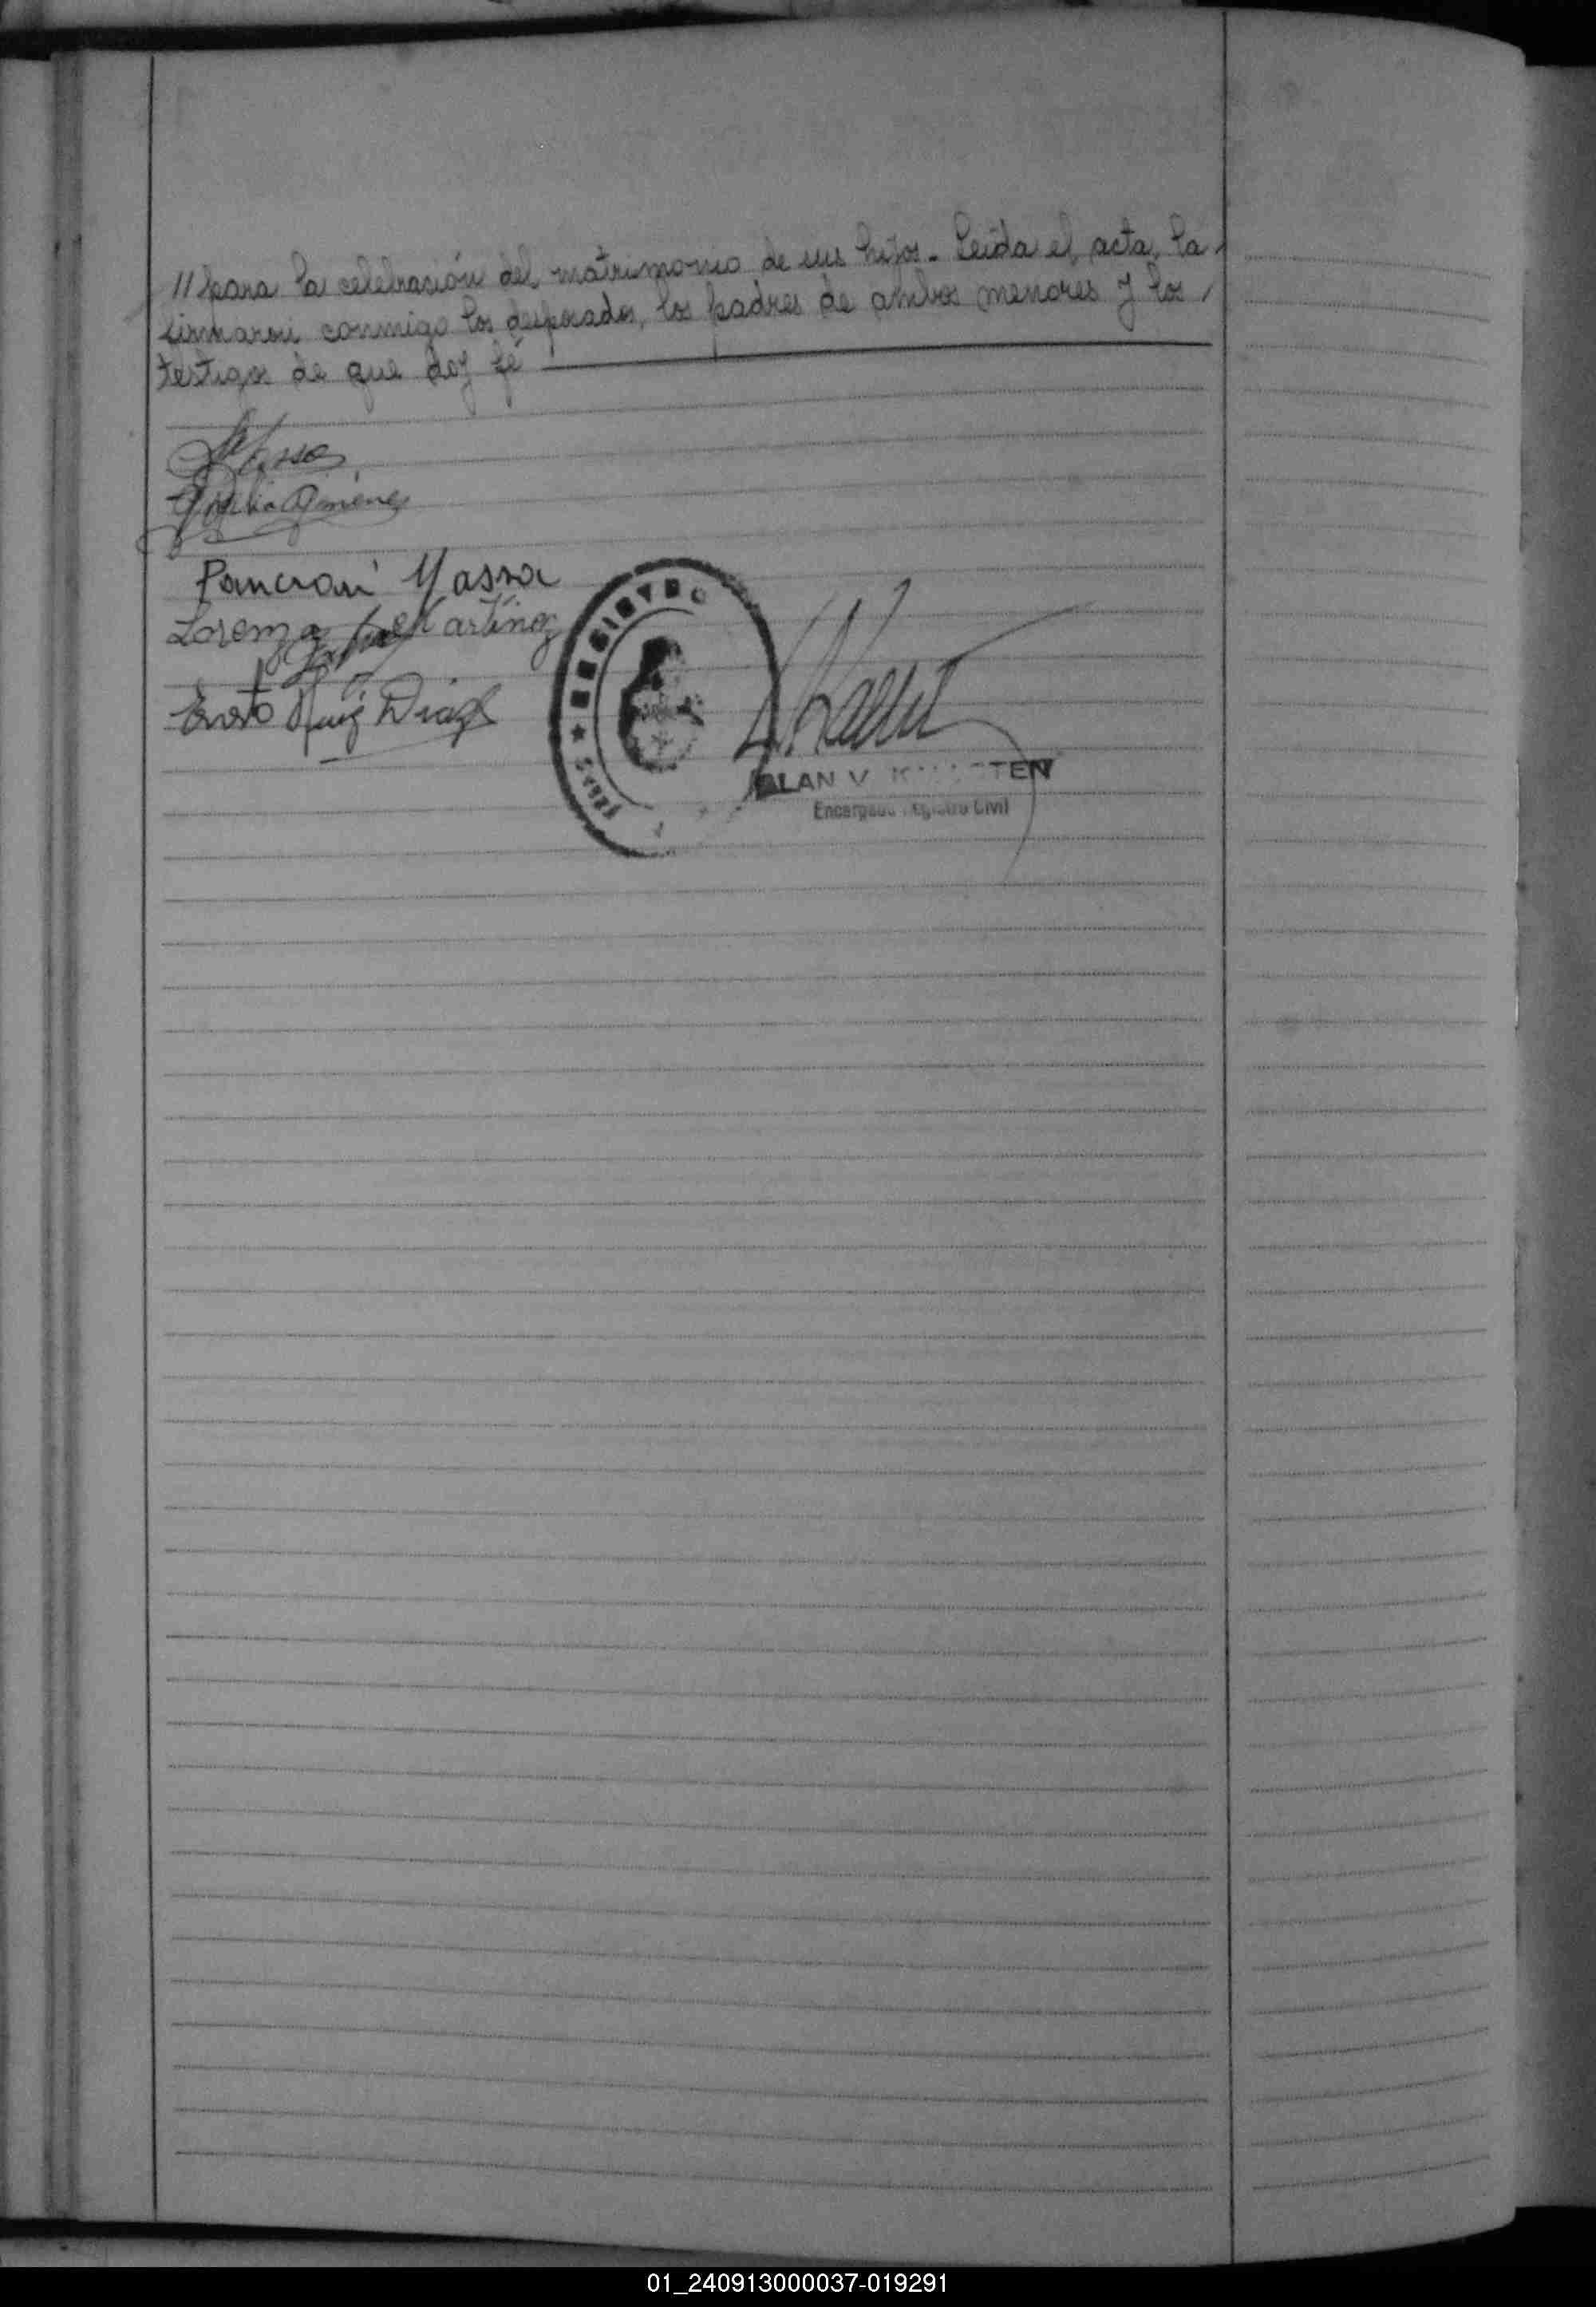 // para la celebración del matrimonio de sus hijos. Leída el acta, la
firmaron conmigo los desposados, los padres de ambos menores y los
testigos de que doy fé
Massa
Gimenez
Massa
Lorenza Martinez
Ruiz Diaz
REGISTRO
ALAN V.
Encargado Registro Civil
01_240913000037-019291